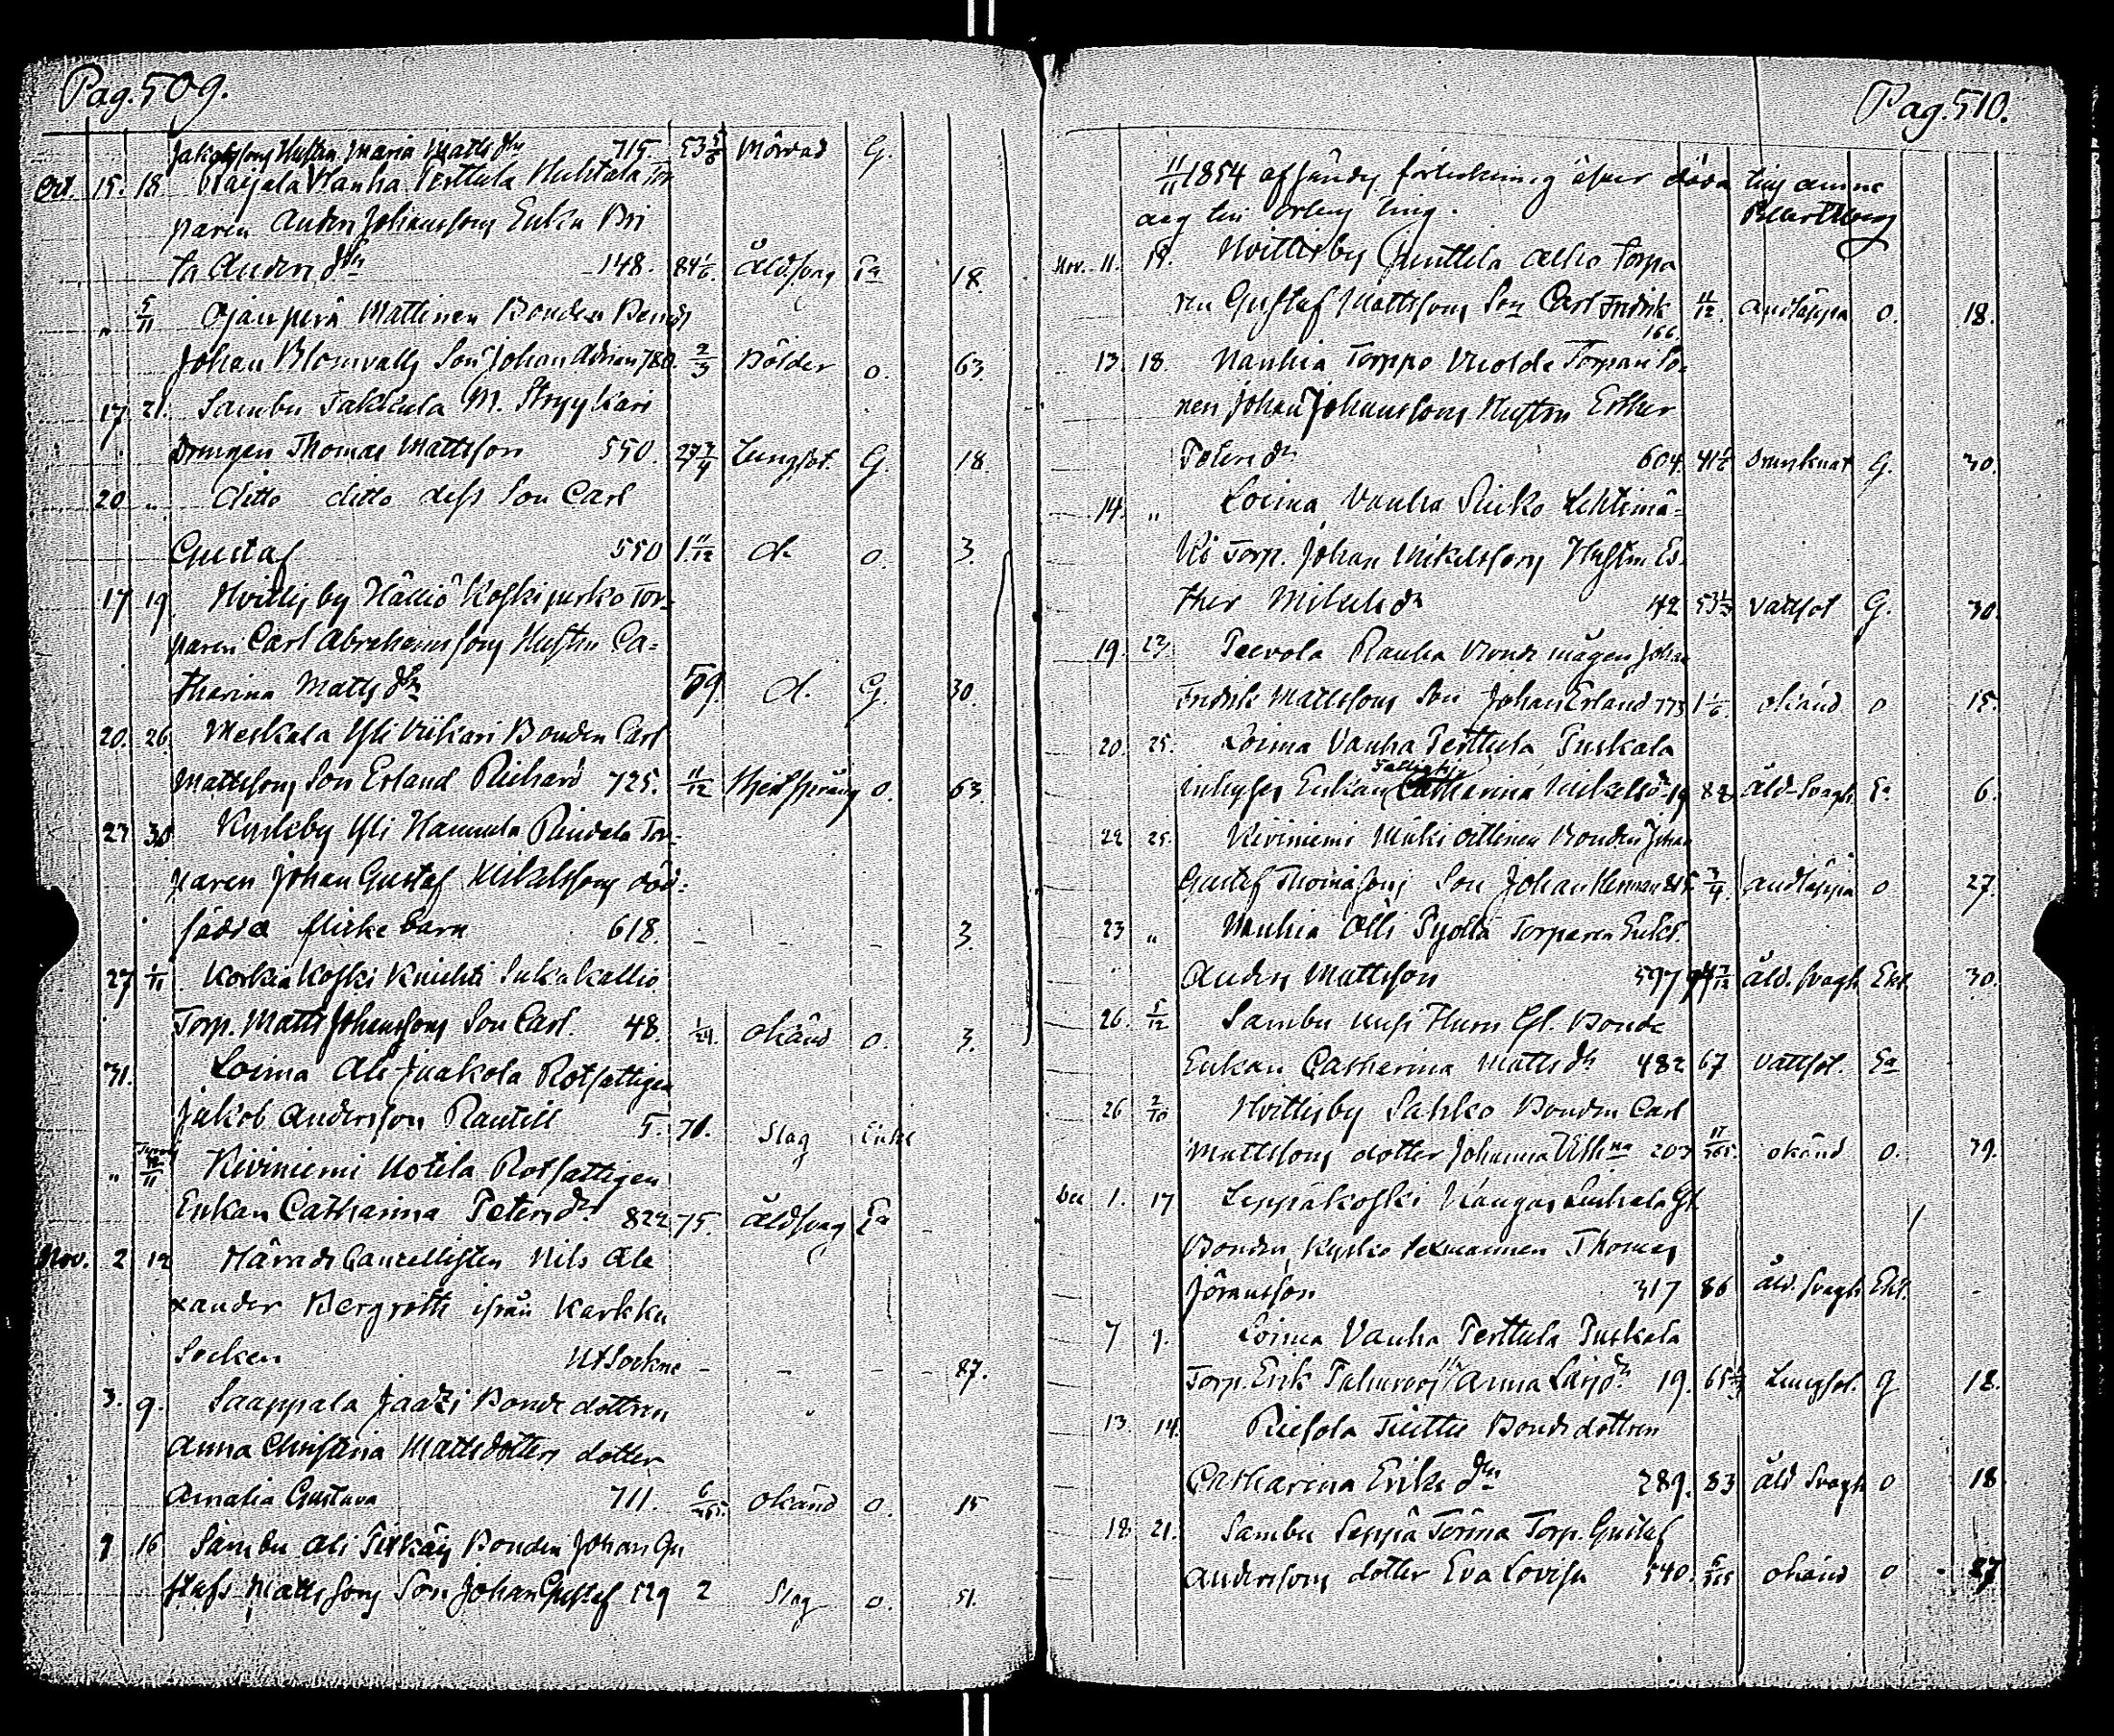 Pag. 509.
Jakobssons Hustru Maria Matts dtr 715. 53 5/6 Mördad G.
Oct. 15. 18 Raijala Vanha Perttula Huhtala Tor
paren Anders Johanssons Enka Bri
ta Anders dtr 148. 84 1/6. Åld.svag Ea 18.
" 5/11 Ojanperä Mattinen Bonden Bendt
Johan Blomvalls Son Johan Adrian 780. 2/3 Bölder o. 63.
17 21. Sambu Takkula M. Stryykäri
Drengen Thomas Mattsson 550. 27 3/4 Lungsot. G. 18
20 " ditto ditto dess Son Carl
Gustaf 550 1 11/12 d. o. 3.
17 19 Hvittisby Hälliö Koskipirko Tor-
paren Carl Abrahamssons Hustru Ca=
tharina Matts dtr 59. d. G. 30.
20. 26. Meskala Yli Viikari Bonden Carl
Mattssons Son Erland Richard 725. 11/12 Hjertsprång o. 63.
27 30 Kyrkby Yli Hannula Rindala Tor-
paren Johan Gustaf Mikelssons död=
födda flicke barn 618. - - - 3.
27 1/11 Korkiakoski Knichti Sukakallio
Torp. Matts Johanssons Son Carl. 48. 1/24. okänd o. 3.
31. Loima Ali Juakola Rotfattigen
Jakob Andersson Rautell 5. 70. Slag Enkl
" 12/11 Kiviniemi Uotila Rotfattigen
Enkan Catharina Peters dtr 822 75. åldsvag Ea -
Nov. 2 12 Härads Cancellisten Nils Ale
xander Bergroth ifrån Karkku
Socken UtSockne - - - 87.
3. 9. Saappala Jaazi Bonde dottren
Anna Christina Mattsdotters dotter
Amalia Gustava 711. 6/365. okänd o. 15
9 16 Sambu Ali Pitkäs Bonden Johan Gu
stafs Mattssons Son Johan Gustaf 529 2 Slag o. 51.
Pag. 510.
11/11 1854 afsändes förteckning öfver döda
Nov. 11. 19. Hvittisby Junttila Alho Torpa
ren Gustaf Mattssons Son Carl Fredrik 11/12. Andtäppa o. 18.
166.
13. 18. Mauhia Torppo Vuolde Torpare So-
nen Johan Johanssons Hustru Esther
Peters dr 604. 41 1/2 Drunknat G. 30.
14. " Loima Vanha Sicko Lehtimä=
ki Torp. Johan Mikelssons Hustru Es-
ther Mikels dr 42 53 1/2 Vattsot G. 30.
19. 23 Peevola Rauha Bonde mågen Johan
Fredrik Mattssons Son Johan Erland 773 1 1/6. okänd o 15.
20. 25. Loima Vanha Perttula Puskala
Inhyses Enkan Catharina Mikelsdr 19 82 åld-svagh. Ea 6.
22 25. Kiviniemi Mäki Ollinen Bonden Johan
Gustaf Thomassons Son Johan Herman 815. 3/4. andtäppa o 27.
23 " Mauhia Olli Pyöltä Torparen Enkl.
Anders Mattsson 597 åld. svagh Enkl. 30.
26. 5/12 Sambu Uusi Thura Gl. Bonde
Enkan Catharina Matts dr 482 67 Vattsot. Ea
26 2/10 Hvittisby Sahko Bonden Carl
Mattssons dotter Johanna Vilh na 207 17/365. okänd o. 39.
Dec 1. 17 Leppäkoski Nangas Laihala Gl.
Bonden, Kyrko sexmannen Thomas
Göransson 317 86 åld. svagh Enkl. -
7 9. Loima Vanha Perttula Puskala
Torp. Erik Hu Anna Larsdr 19. 65 Lungsot. g 18.
13. 14. Riesola Tuittu Bonde dottren
Catharina Eriks dtr 289. 83 åld Svagh o 18
18. 21. Sambu Seppä Torma Torp. Gustaf
Anderssons dotter Eva Lovisa 540. 6/365 okänd o 27